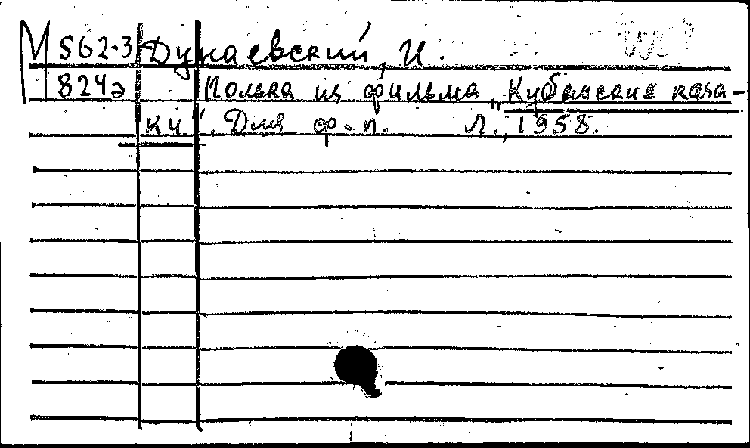 М 562-3 Дунаевский, И.
824э Полька из фильма „Кубанские каза-
ки". Для ф-п. Л., 1958.